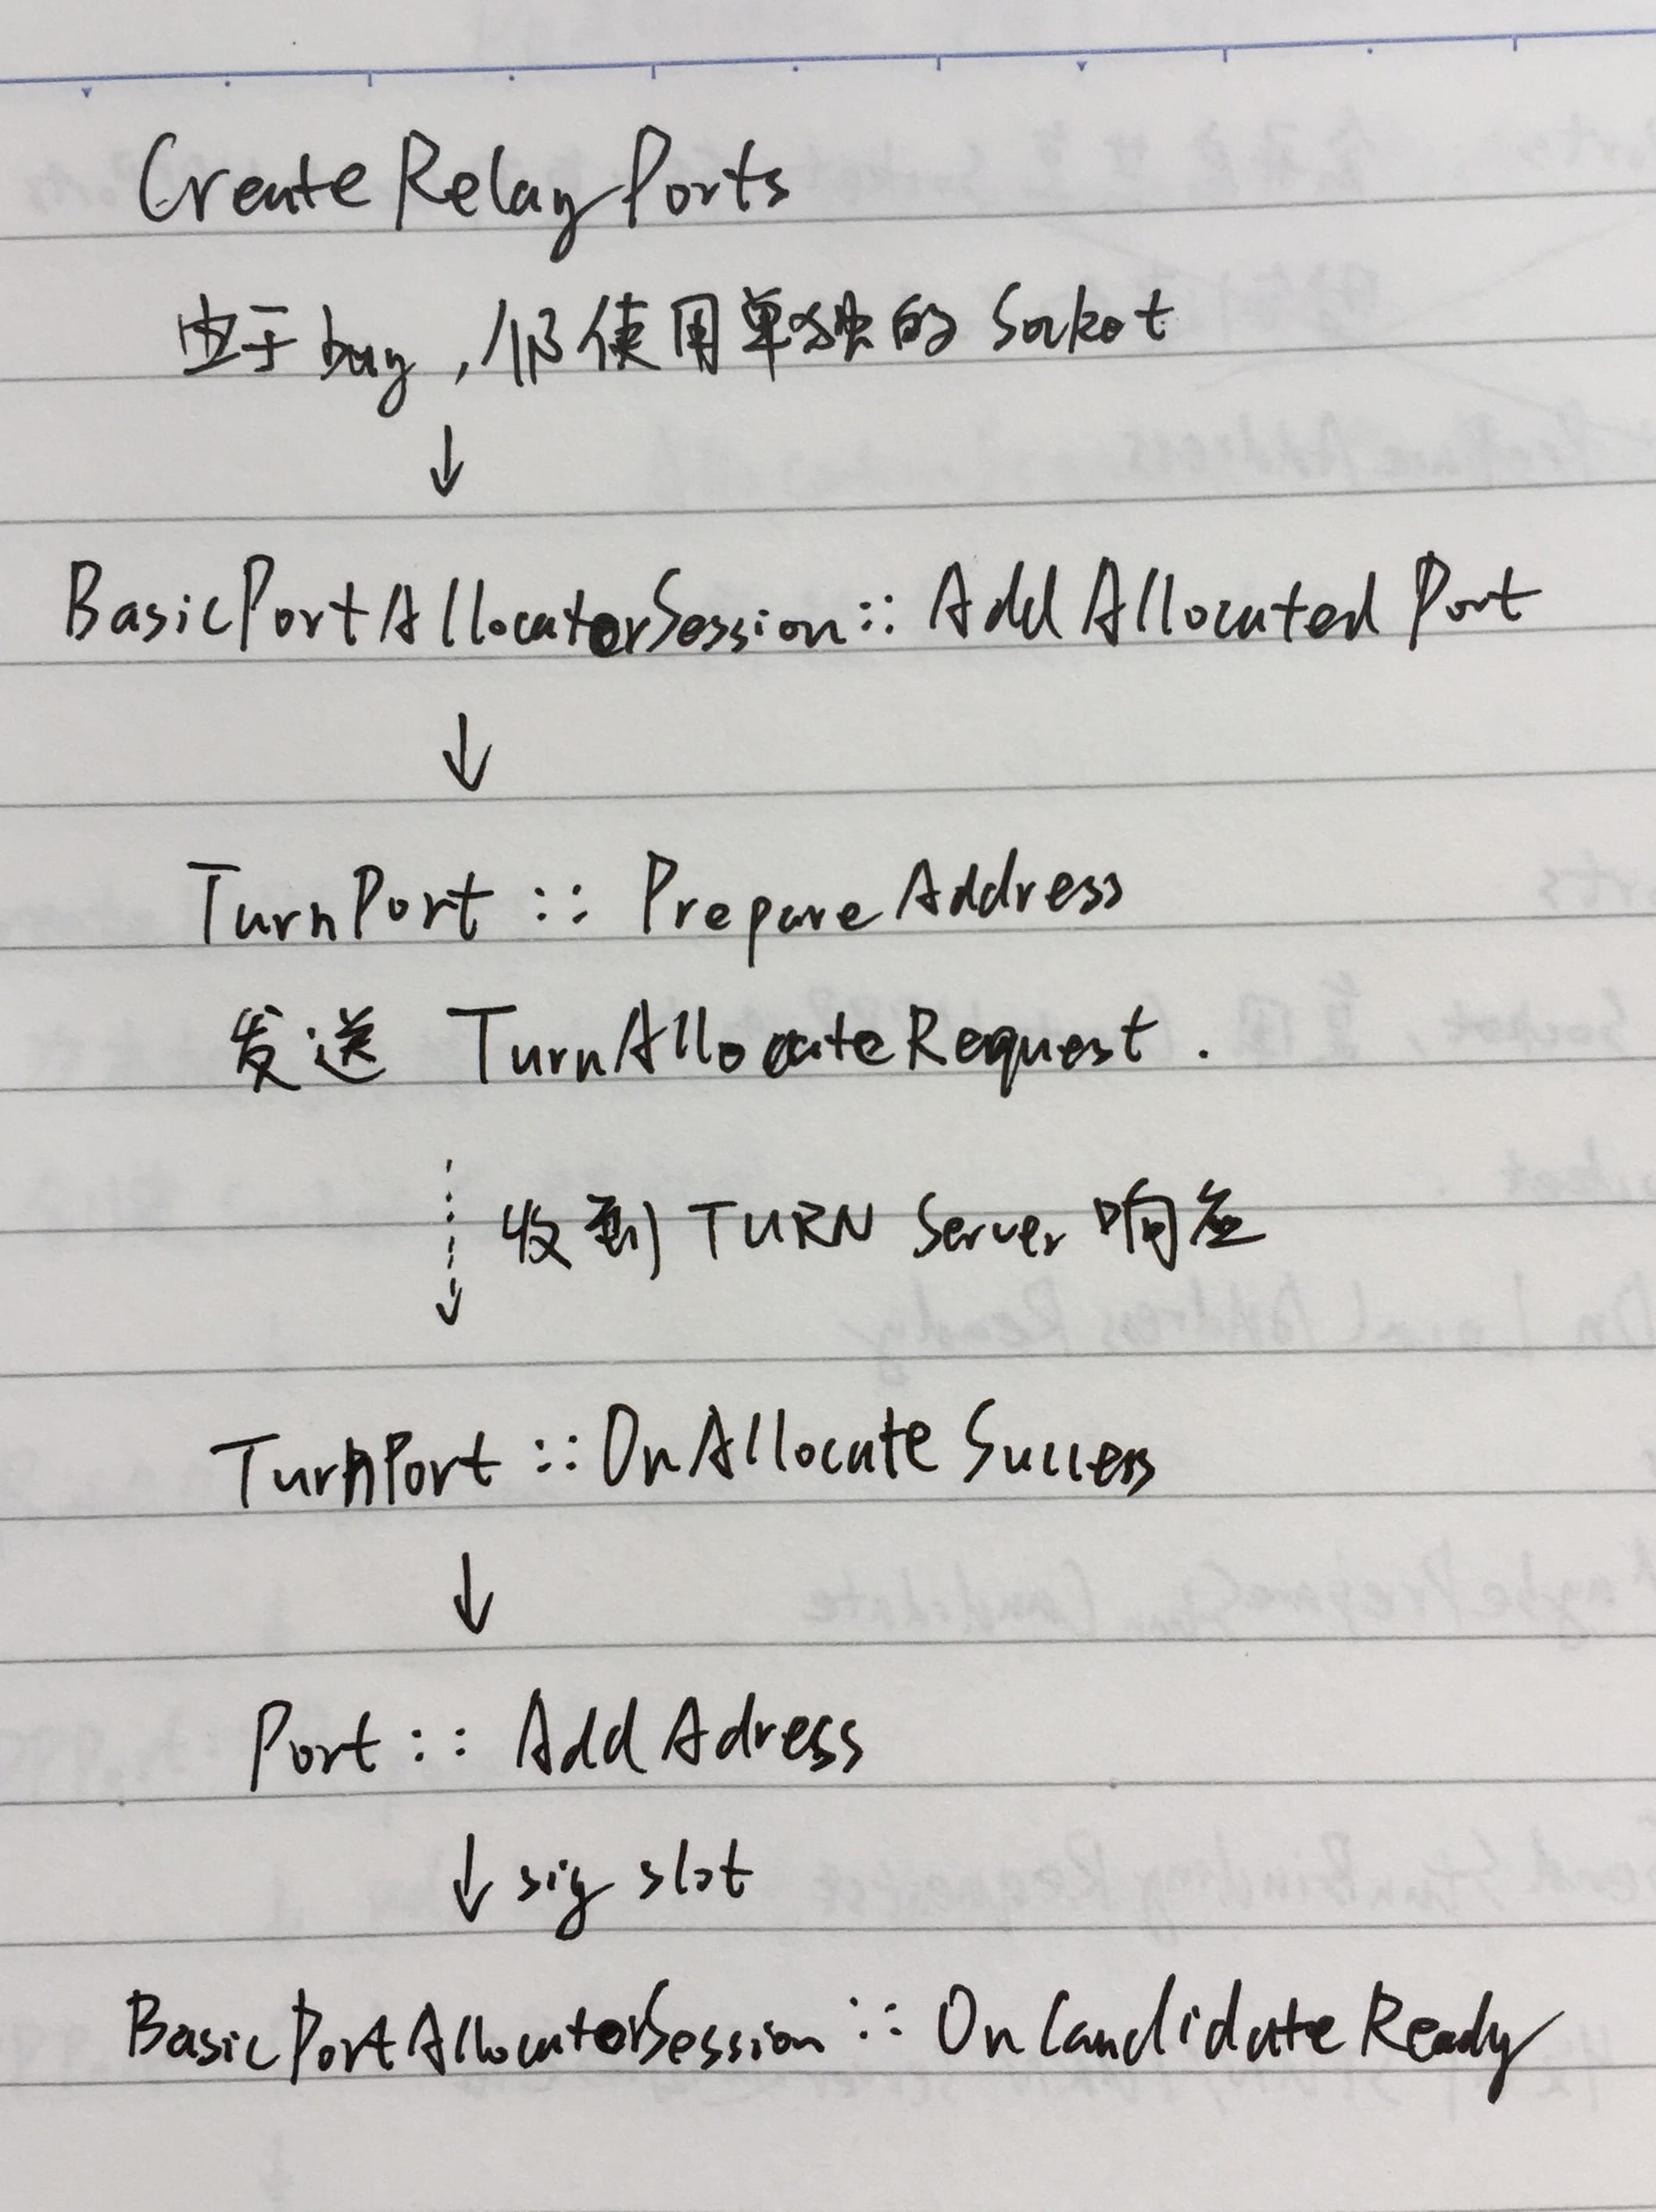 CreateRelayPorts
由于bug,仍使用单独的Socket
↓
BasicPortAllocatorSession::AddAllocatedPort
↓
TurnPort::PrepareAddress
发送 TurnAllocateRequest.
收到 TURN Server 响应
↓
TurnPort::OnAllocateSuccess
↓
Port::AddAdress
↓ sigslot
BasicPortAllocatorSession::OnCandidateReady